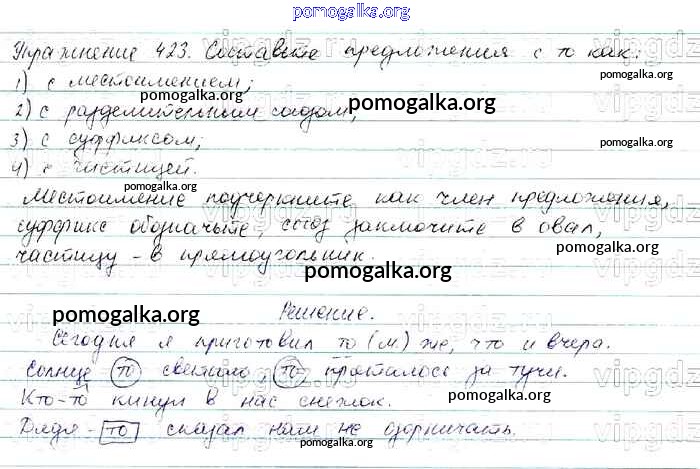 pomogalka.org
Упражнение 423. Составьте предложения с то как:
1) с местоимением;
pomogalka.org
2) с разделительным союзом;
pomogalka.org
3) с суффиксом;
pomogalka.org
4) с частицей.
pomogalka.org
Местоимение подчеркните как член предложения,
суффикс обозначьте, союз заключите в овал,
pomogalka.org
частицу - в прямоугольник.
pomogalka.org
Решение.
pomogalka.org
Сегодня я приготовил то (м.) же, что и вчера.
Солнце то светило, то пряталось за тучи.
pomogalka.org
Кто-то кинул в нас снежок.
pomogalka.org
Дядя-то сказал нам не озорничать.
pomogalka.org